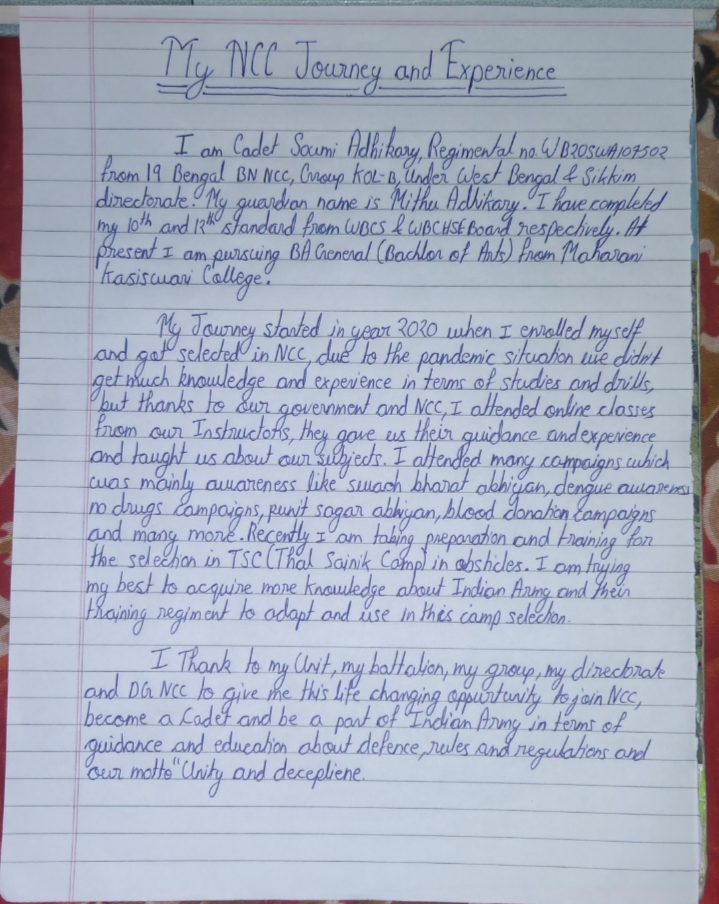 My NCC Journey and Experience
I am Cadet Soumi Adhikary, Regimental no. WB20SWA107502
from 19 Bengal BN NCC, Group KOL-B, Under West Bengal & Sikkim
directorate. My guardian name is Mithu Adhikary. I have completed
my 10th and 12th standard from WBCS & WBCHSE Board respectively. At
present I am pursuing BA General (Bachlor of Arts) from Maharani
Kasiswari College.
My Journey started in year 2020 when I enrolled myself
and got selected in NCC, due to the pandemic situation we didn't
get much knowledge and experience in terms of studies and drills,
but thanks to our government and NCC, I attended online classes
from our Instructors, they gave us their guidance and experience
and taught us about our subjects. I attended many campaigns which
was mainly awareness like swach bharat abhiyan, dengue awareness
no drugs campaigns, punit sagar abhiyan, blood donation campaigns
and many more. Recently I am taking preparation and training for
the selection in TSC (Thal Sainik Camp) in obsticles. I am trying
my best to acquire more knowledge about Indian Army and their
training regiment to adapt and use in this camp selection.
I Thank to my Unit, my battalion, my group, my directorate
and DG NCC to give me this life changing oppurtunity to join NCC,
become a Cadet and be a part of Indian Army in terms of
guidance and education about defence, rules and regulations and
our motto "Unity and decepliene.